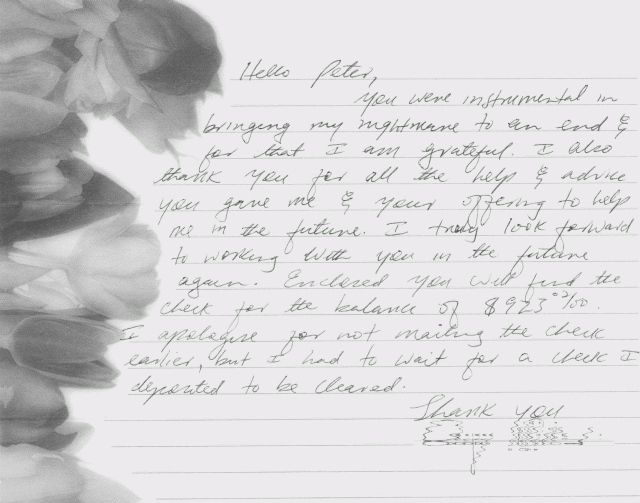 Hello Peter,
you were instrumental in
bringing my nightmare to an end &
for that I am grateful. I also
thank you for all the help & advice
you gave me & your offering to help
me in the future. I truly look forward
to working with you in the future
again. Enclosed you will find the
check for the balance of $923 02/00.
I apologize for not mailing the check
earlier, but I had to wait for a check I
deposited to be cleared.
Thank you